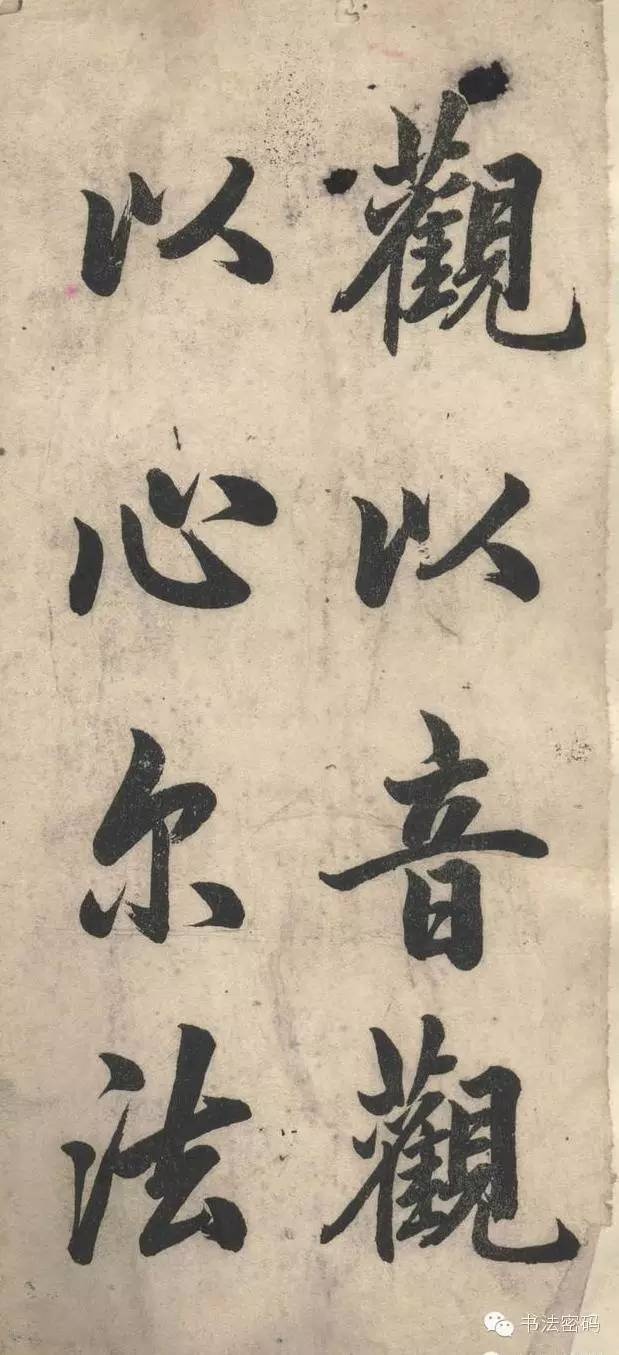 觀以音觀
以心尔法
书法密码